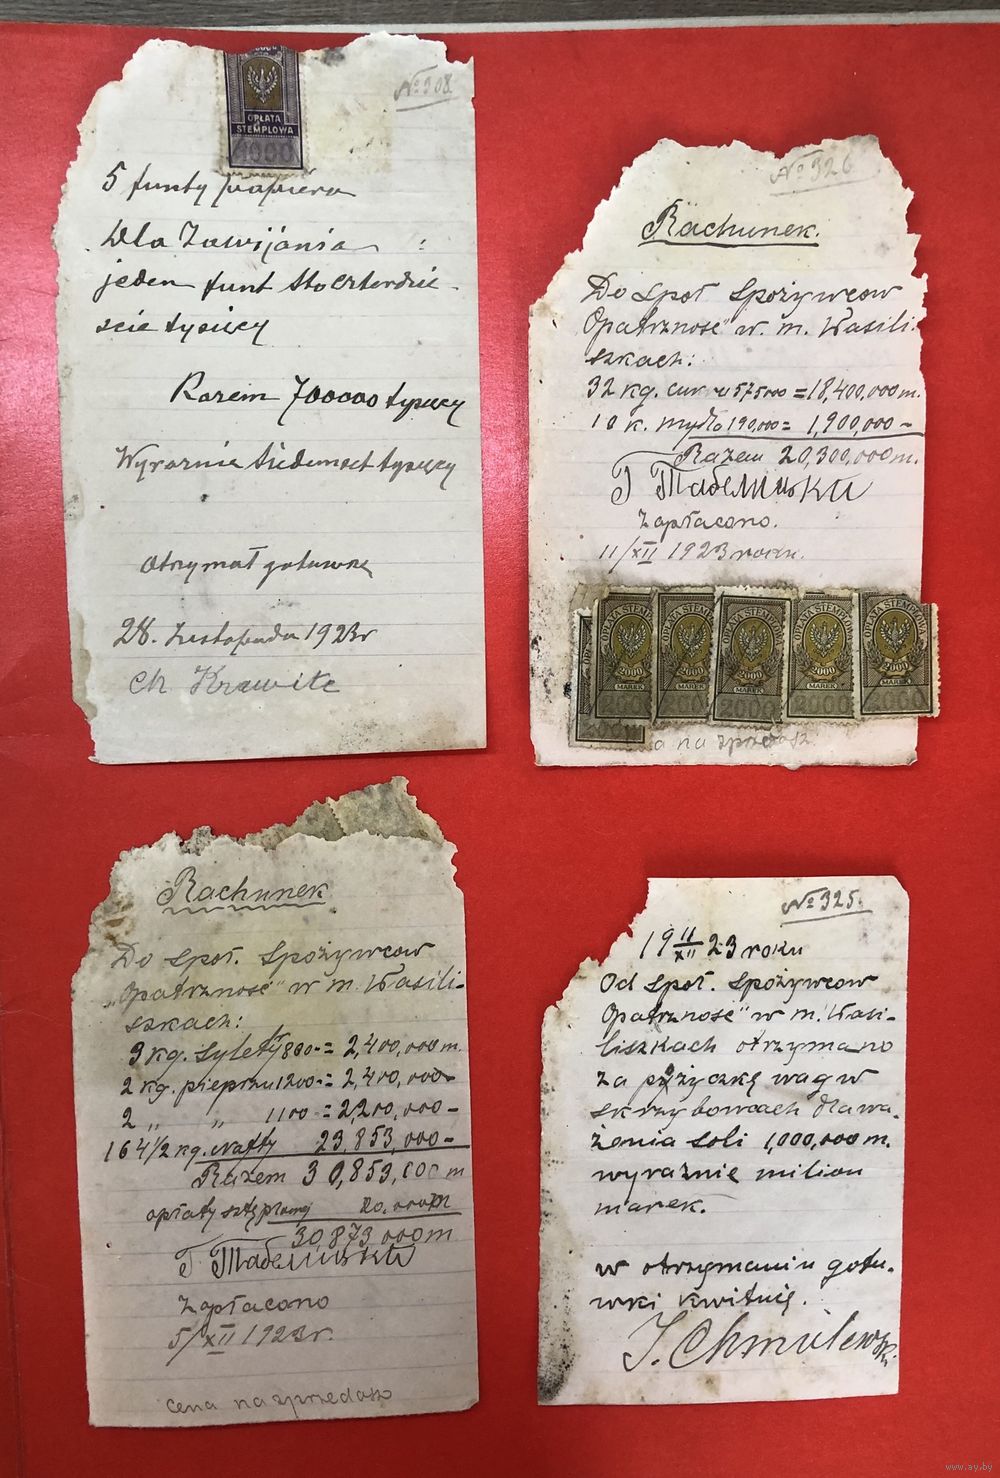 № 308
OPŁATA
STEMPLOWA
5 funty papiéra
Dla Zawijánia :
jeden funt Stoczterdzie-
ście tysięcy
Razem 700000 tysięcy
Wyraźnie siedemset tysięcy
Otrzymał gotówkę
28. Listopada 1923 r
Ch Krawitc
№ 326
Rachunek.
Do Społ Spożywcow
Opatrzność" w. m. Wasili-
szkach:
32 kg. cukru 575000 = 18,400,000 m.
10 k. mydło 190,000 = 1,900,000 -
Razem 20,300,000 m.
Г Табелицки
Zapłacono.
11/XII 1923 roku.
OPŁATA STEMPLOWA
2000
MAREK
OPŁATA STEMPLOWA
2000
MAREK
OPŁATA STEMPLOWA
2000
MAREK
OPŁATA STEMPLOWA
2000
MAREK
2000
MAREK
na sprzedasz
Rachunek
Do Społ. Spożywcow
„Opatrzność" w m. Wasili-
szkach:
3 kg. Sylety 800 = 2,400,000 m.
2 kg. pieprzu 1200 = 2,400,000 -
2 „ „ 1100 = 2,200,000 -
164 1/2 kg. Nafty 23,853,000 -
Razem 30,853,000 m
opłaty sztęplowej 20.000 m
30,873,000 m
Г Табелицки
Zapłacono
5/XII 1923 r.
cena na sprzedasz
№ 325.
19 11/XII 23 roku
Od Społ. Spożywcow
Opatrzność" w m. Wasi-
liszkach otrzymano
za pożyczkę wag w
skrzybowcach dla wa-
żenia soli 1,000,000 m.
wyraźnie milion
marek.
w otrzymaniu gotu-
wki kwituję.
J. Chmielewski.
www.ay.by